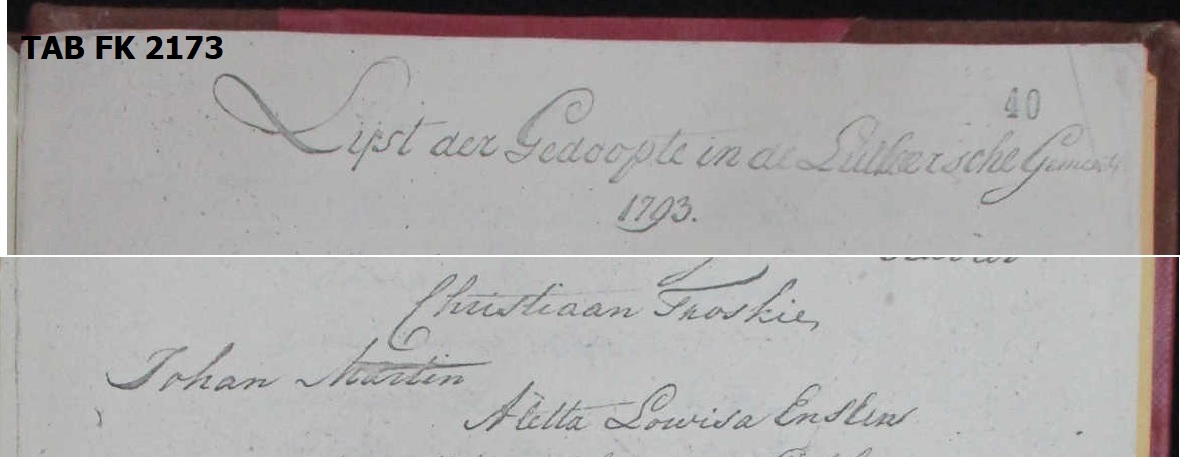 TAB FK 2173
40
Lijst der Gedoopte in de Luthersche Gemeente
1793.
Christiaan Froskie,
Johan Martin
Aletta Lowisa Enslin